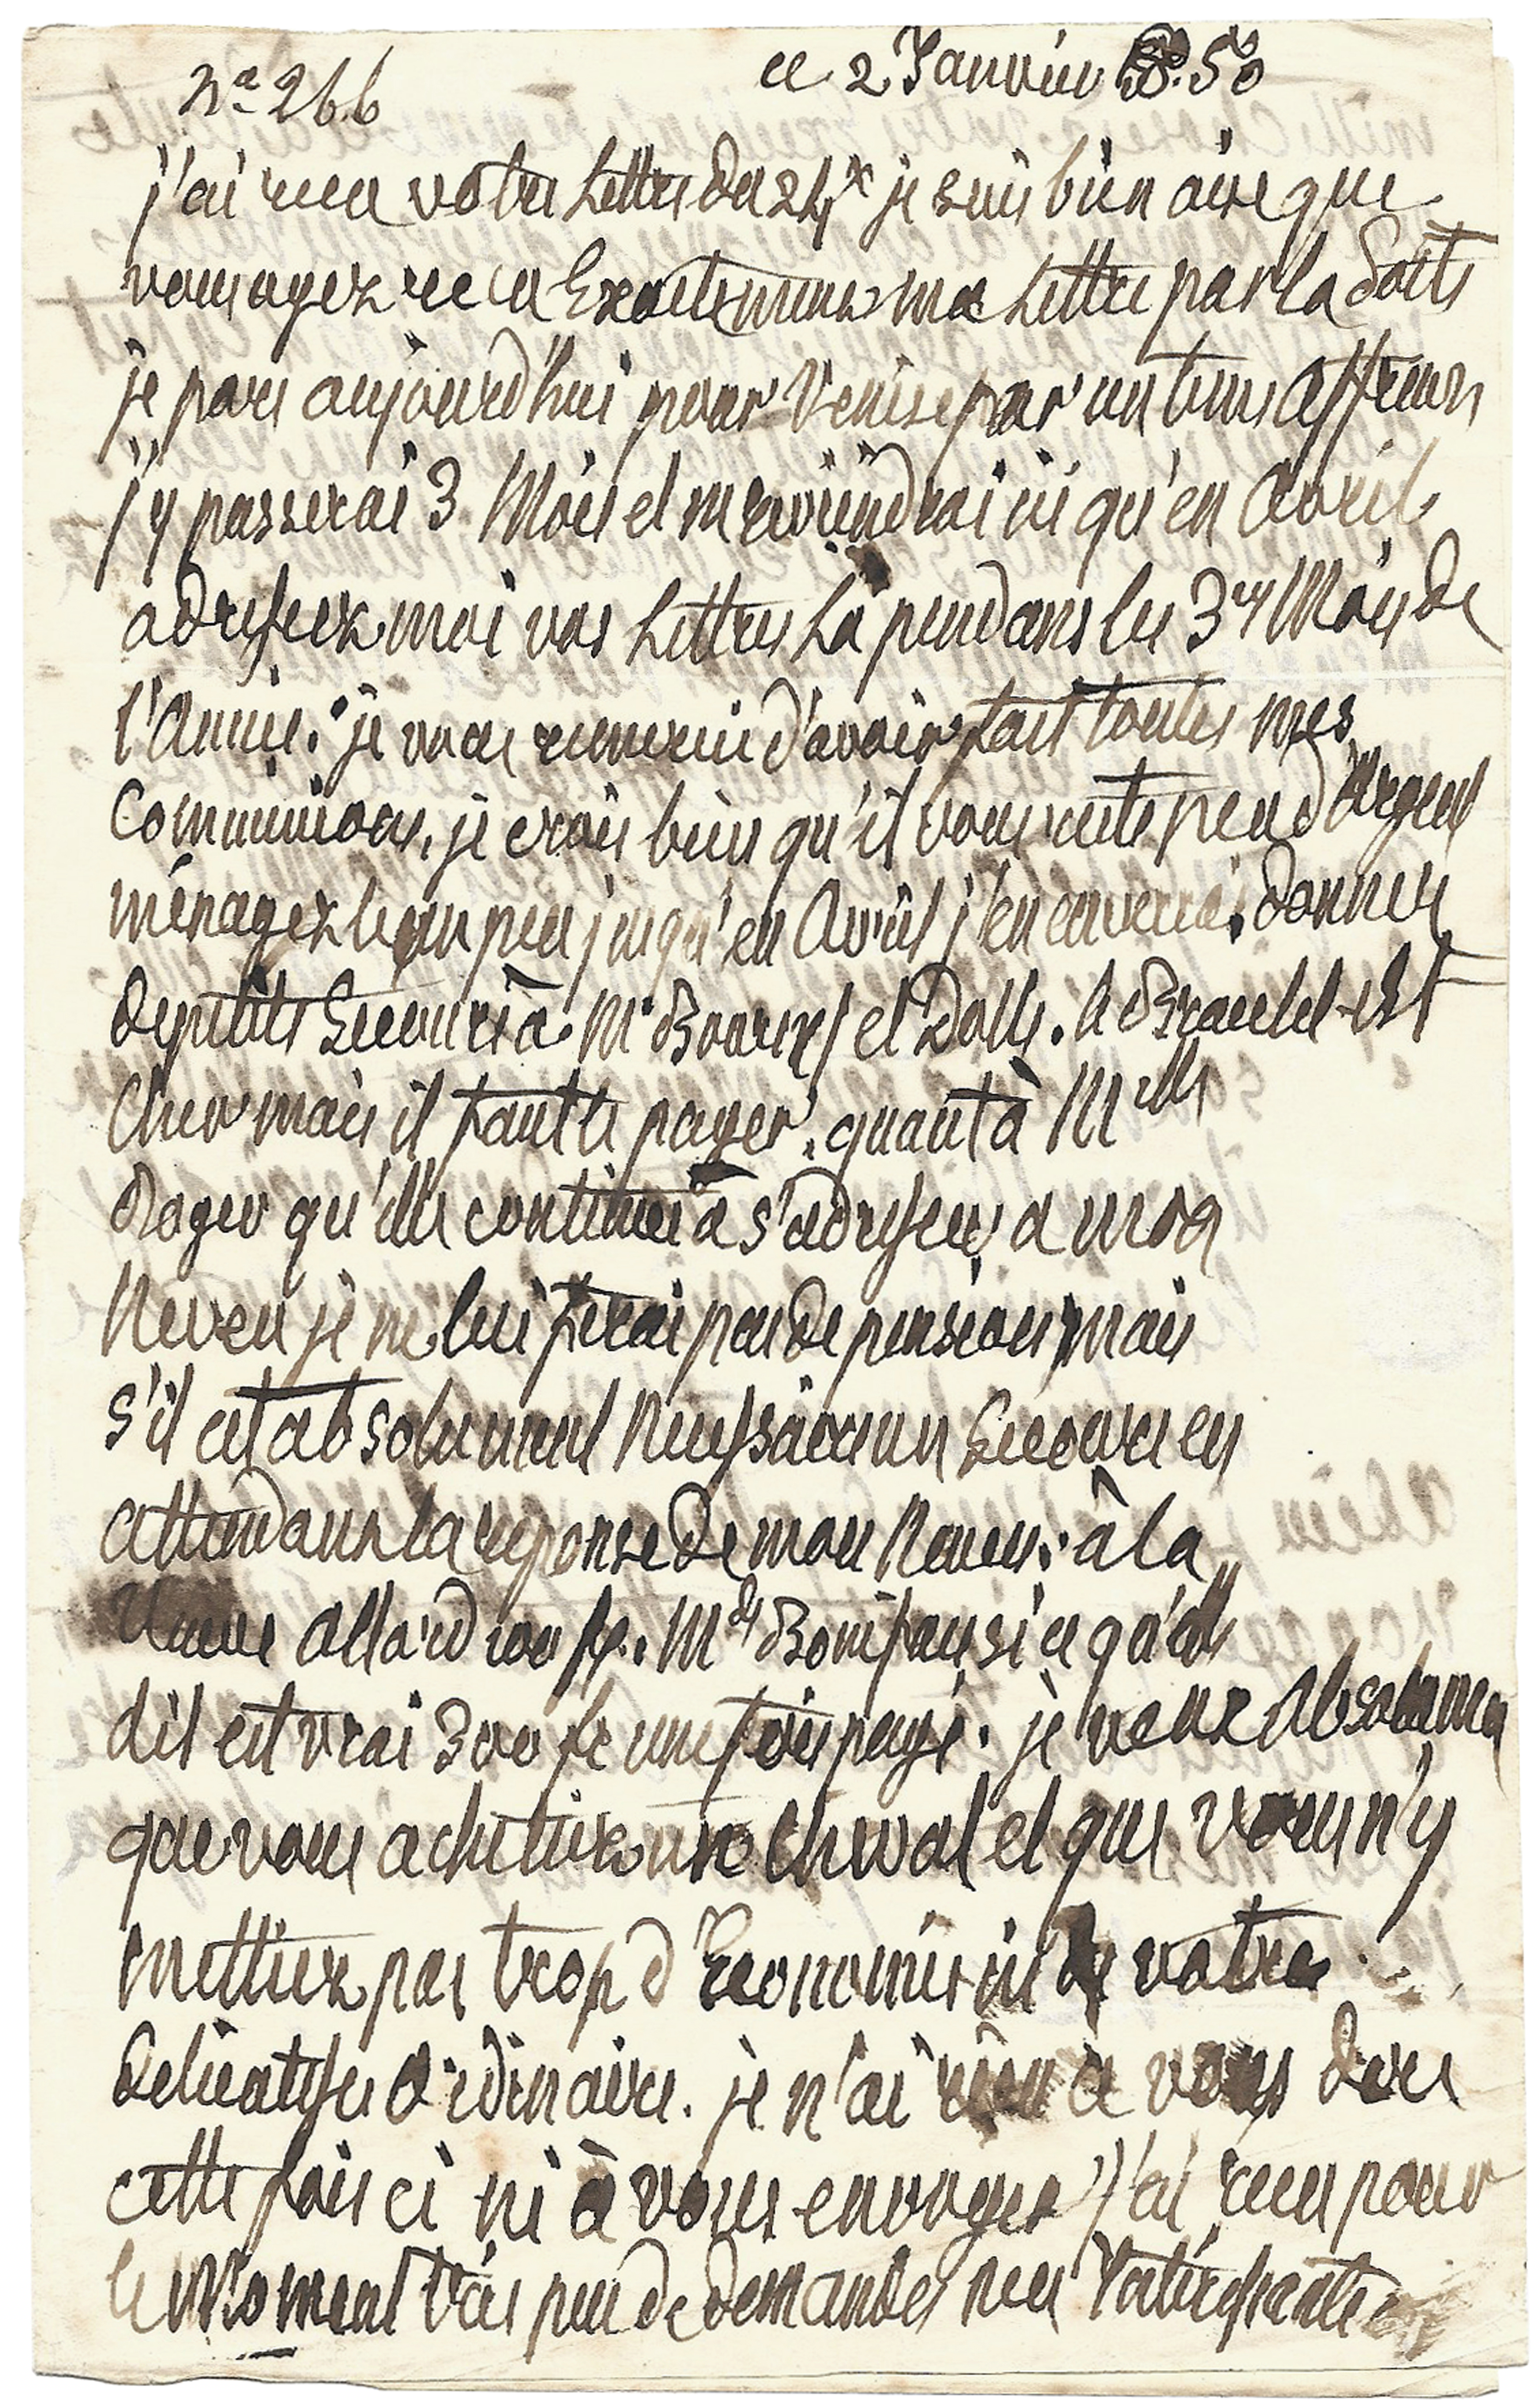 n.o 266
ce 2 Janvier 50
j'ai recu votre Lettre du 24 je suis bien aise que
vous ayez recu Exactement ma Lettre par la Poste
je pars aujourd'hui pour Venise par un tems affreux
j'y passerai 3 Mois et ne reviendrai ici qu'en Avril
adressez moi vos Lettres La pendant les 3 1ers Mois de
l'Année. je vous remercie d'avoir fait toutes mes
Commissions, je crois bien qu'il vous reste peu d'Argent
ménagez le un peu jusqu'en Avril j'en enverrai. donnez
de petits Secours à Mr et Dolle. le est
Cher mais il faut le payer. quant à Melle
Roger qu'elle continue à s'adresser a mon
Neveu je ne lui ferai pas de pension mais
s'il est absolument Necessaire un Secours en
attendant la reponse de mon Neveu. à la
Veuve Allard 100 fr. Md si ce qu'elle
dit est vrai 300 fr une fois payé. je veux Absolument
que vous achetiez un Cheval et que vous n'y
mettiez pas trop d'Economie ni de votre
Delicatesse Ordinaire. je n'ai rien a vous dire
cette fois ci ni à vous envoyer j'ai recu pour
le Moment très peu de demandes peu Interessantes